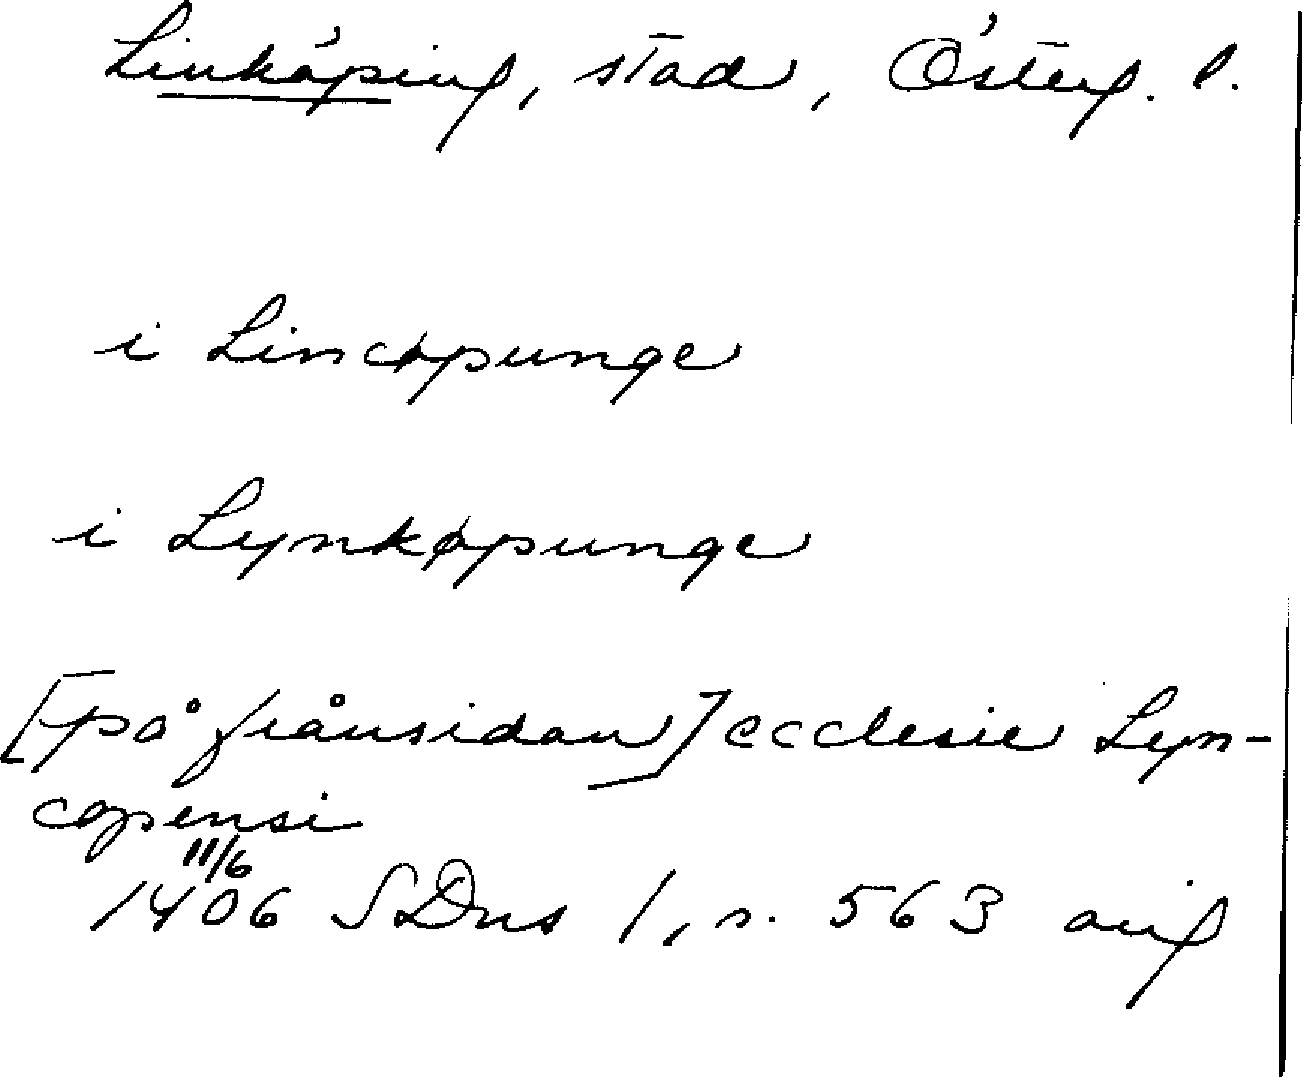 Linköping, stad, Österg. l.
i Lincøpunge
i Lynkøpunge
[på frånsidan] ecclesie Lyn-
copensi
11/6
1406 SDns 1, s. 563 avig